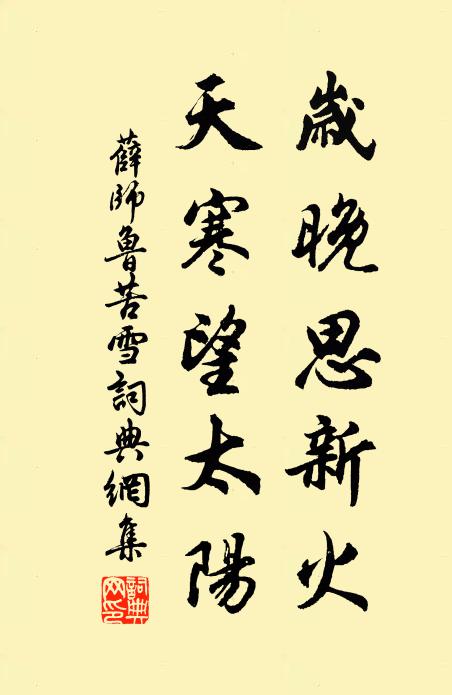 歲晚思新火
天寒望太陽
薛師魯苦雪詞典網集
詞典網印